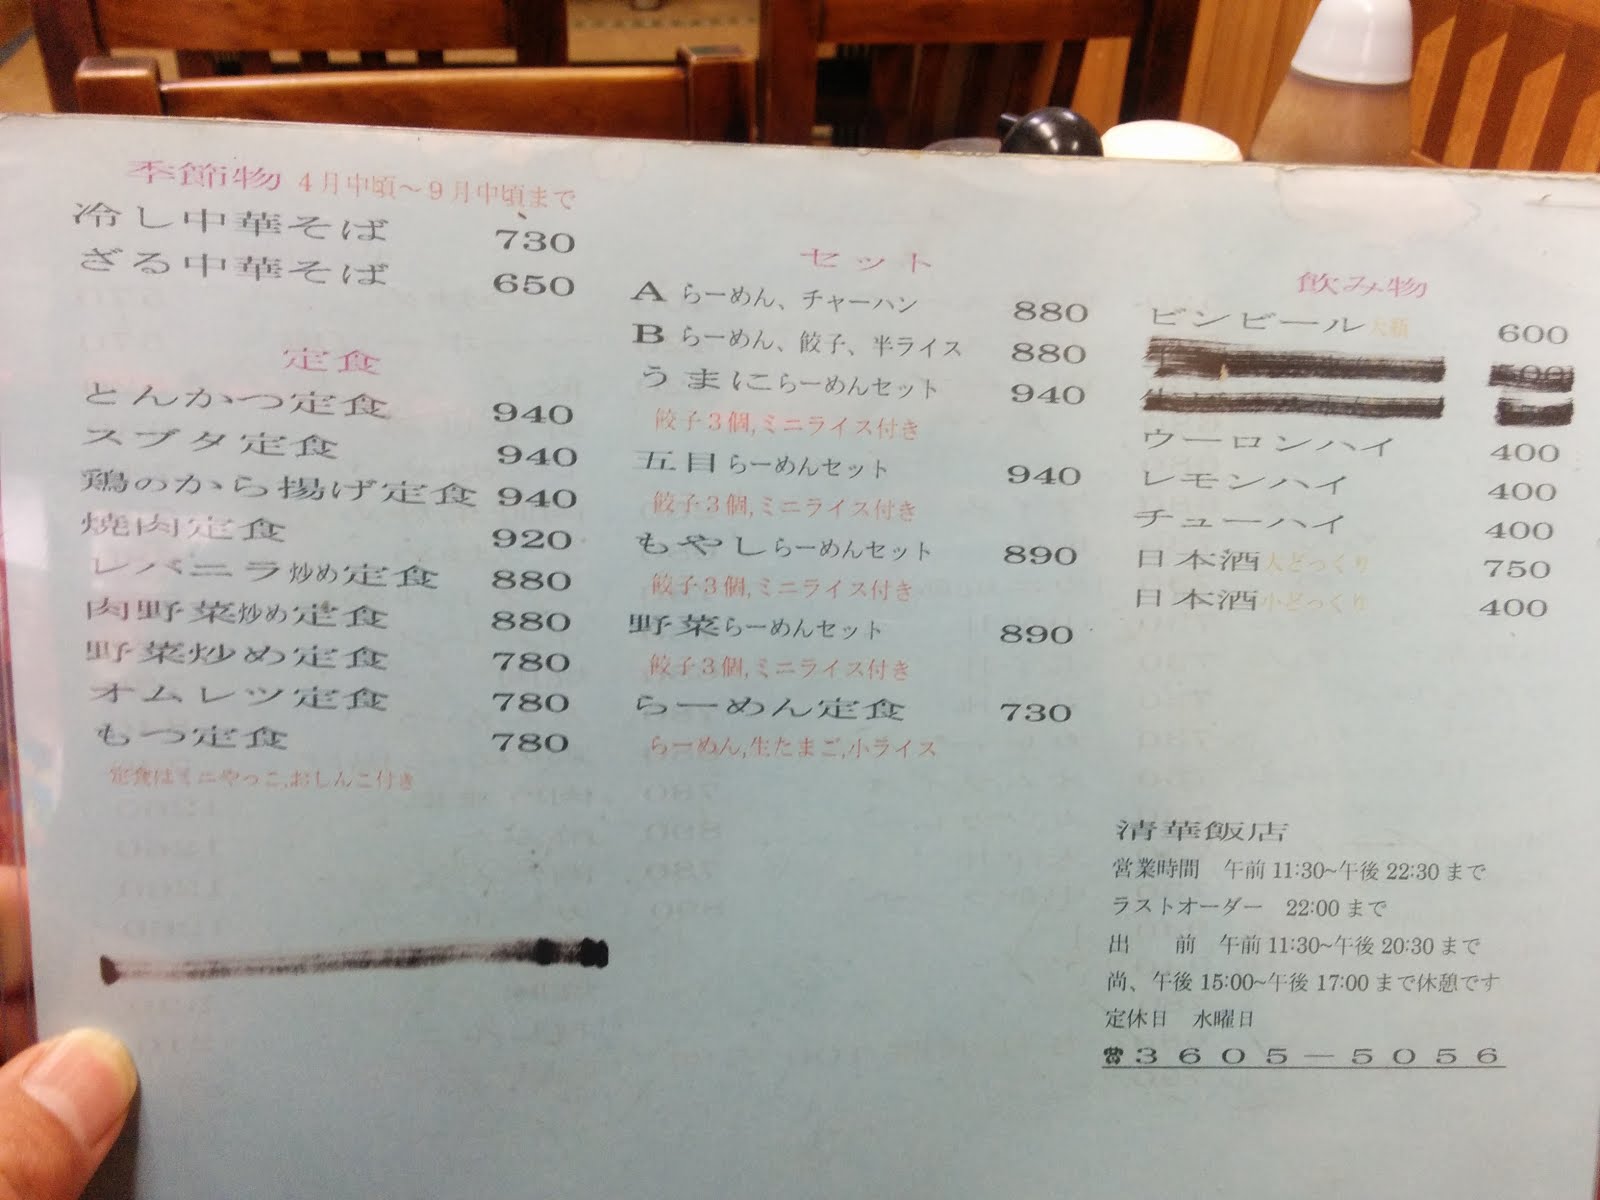 季節物 4月中頃～9月中頃まで
冷し中華そば 730
ざる中華そば 650
定食
とんかつ定食 940
スブタ定食 940
鶏のから揚げ定食 940
焼肉定食 920
レバニラ炒め定食 880
肉野菜炒め定食 880
野菜炒め定食 780
オムレツ定食 780
もつ定食 780
定食はミニやっこ,おしんこ付き
セット
A らーめん、チャーハン 880
B らーめん、餃子、半ライス 880
うまにらーめんセット 940
餃子3個,ミニライス付き
五目らーめんセット 940
餃子3個,ミニライス付き
もやしらーめんセット 890
餃子3個,ミニライス付き
野菜らーめんセット 890
餃子3個,ミニライス付き
らーめん定食 730
らーめん,生たまご,小ライス
飲み物
ビンビール大瓶 600
ウーロンハイ 400
レモンハイ 400
チューハイ 400
日本酒大どっくり 750
日本酒小どっくり 400
清華飯店
営業時間 午前11:30~午後22:30まで
ラストオーダー 22:00まで
出 前 午前11:30~午後20:30まで
尚、午後15:00~午後17:00まで休憩です
定休日 水曜日
☎3605-5056